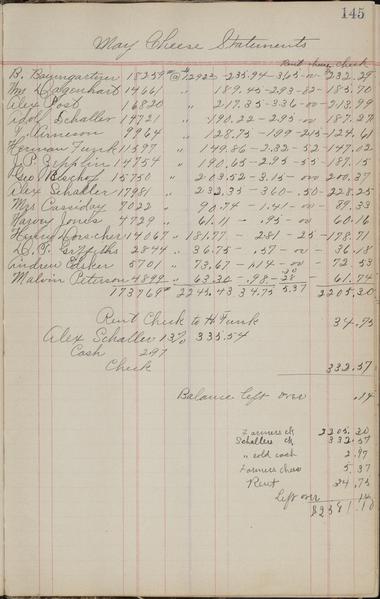 145
May Cheese Statements
Rent cheese check
B. Baumgartner 18259# @ $1.2923 - 235.94 - 3.65 - 00 - 232.29
Wm Dagenhart 14661 " 189.45 - 2.93 - 82 - 185.70
Alex Post 16820 " 217.35 - 3.36 - 00 - 213.99
Adolf Schaller 14721 " 190.22 - 2.95 - 00 - 187.27
Y. Arneson 9964 " 128.75 - 1.99 - 215 - 124.61
Herman Funk 11597 " 149.86 - 2.32 - 52 - 147.02
J. P. Zepplin 14754 " 190.65 - 2.95 - 55 - 187.15
Geo Bischof 15750 " 203.52 - 3.15 - 00 - 200.37
Alex Schaller 17981 " 232.35 - 3.60 - 50 - 228.25
Mrs Cassiday 7022 " 90.74 - 1.41 - 00 - 89.33
Harvey Jones 4729 " 61.11 - .95 - 00 - 60.16
Henry Dorscher 14067 " 181.77 - 2.81 - 25 - 178.71
D. T. Griffiths 2844 " 36.75 - .57 - 00 - 36.18
Andrew Eliker 5701 " 73.67 - 1.14 - 00 - 72.53
Malvin Peterson 4899 " 63.30 - .98 - 58 - 61.74
173769# 2245.43 34.75 5.37 2205.30
Rent Check to H Funk 34.75
Alex Schaller 13% 335.54
Cash 297
Check 332.57
Balance left over .14
Farmers ck 2205.30
Schallers ck 332.57
" sold cash 2.97
Farmers cheese 5.37
Rent 34.75
Left over .14
$2581.10